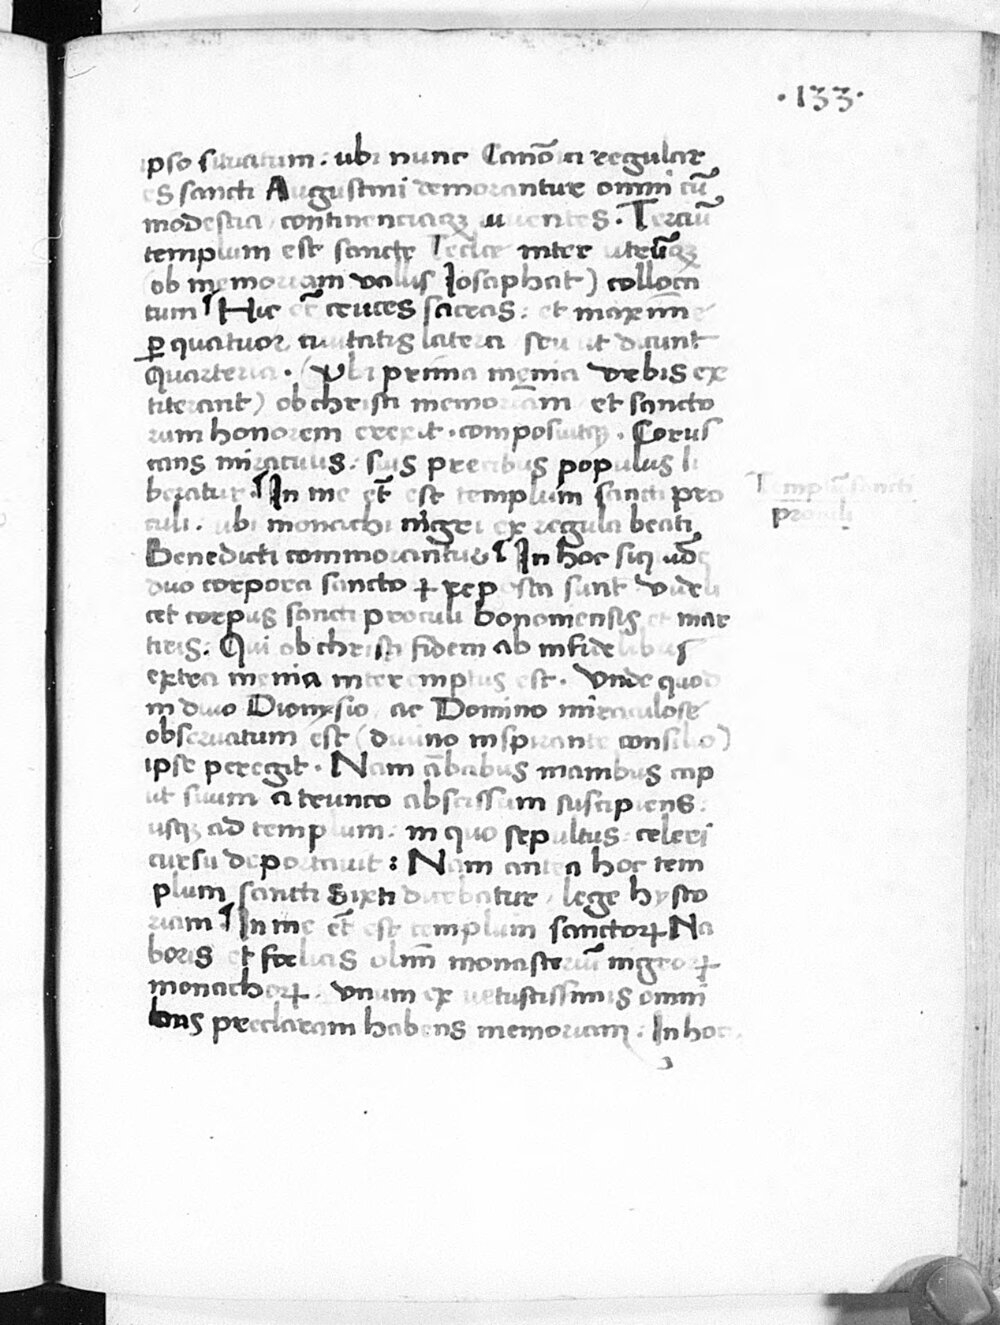 ·133·
ipso situatum. ubi nunc Canōici regular
es sancti Augustini demorantur omni cū
modestia continenciaqꝫ uiuentes. Terciū
templum est sancte Teclae inter utrūqꝫ
(ob memoriam vallis Iosaphat) colloca
tum ¶ Hic et̄ cruces sacras: et maxime
ꝑ quatuor ciuitatis latera seu ut dicunt
Quarteria. (Vbi prima menia vrbis ex
titerant) ob christi memoriam et sancto
rum honorem erexit. composuitqꝫ. Corus
cans miraculis. suis precibus populus li
beratur. ¶ In me et̄ est templum sancti pro
culi. ubi monachi nigri ex regula beati
Benedicti commorantur ¶ In hoc siqͥdē
duo corpora sanctoꝝ reposta sunt videli
cet corpus sancti proculi bononiensis et mar
tiris. Qui ob christi fidem ab infidelibus
extra menia interemptus est. Vnde quod
in diuo Dionysio ac Domino miraculose
obseruatum est (diuino inspirante consilio)
ipse peregit. Nam ābabus manibus cap
ut suum a trunco abscissum suscipiens:
usqꝫ ad templum. in quo sepultus: celeri
cursu deportauit: Nam antea hoc tem
plum sancti Sixti dicebatur, lege hysto
riam ¶ In me et̄ est templum sanctoꝝ Na
boris et foelicis olim̄ monasteriū nigroꝝ
monachoꝝ. Vnum ex uetustissimis omni
bus preclaram habens memoriam. In hoc
Templū sancti
proculi